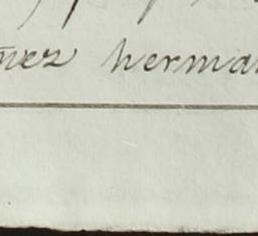 nez herma